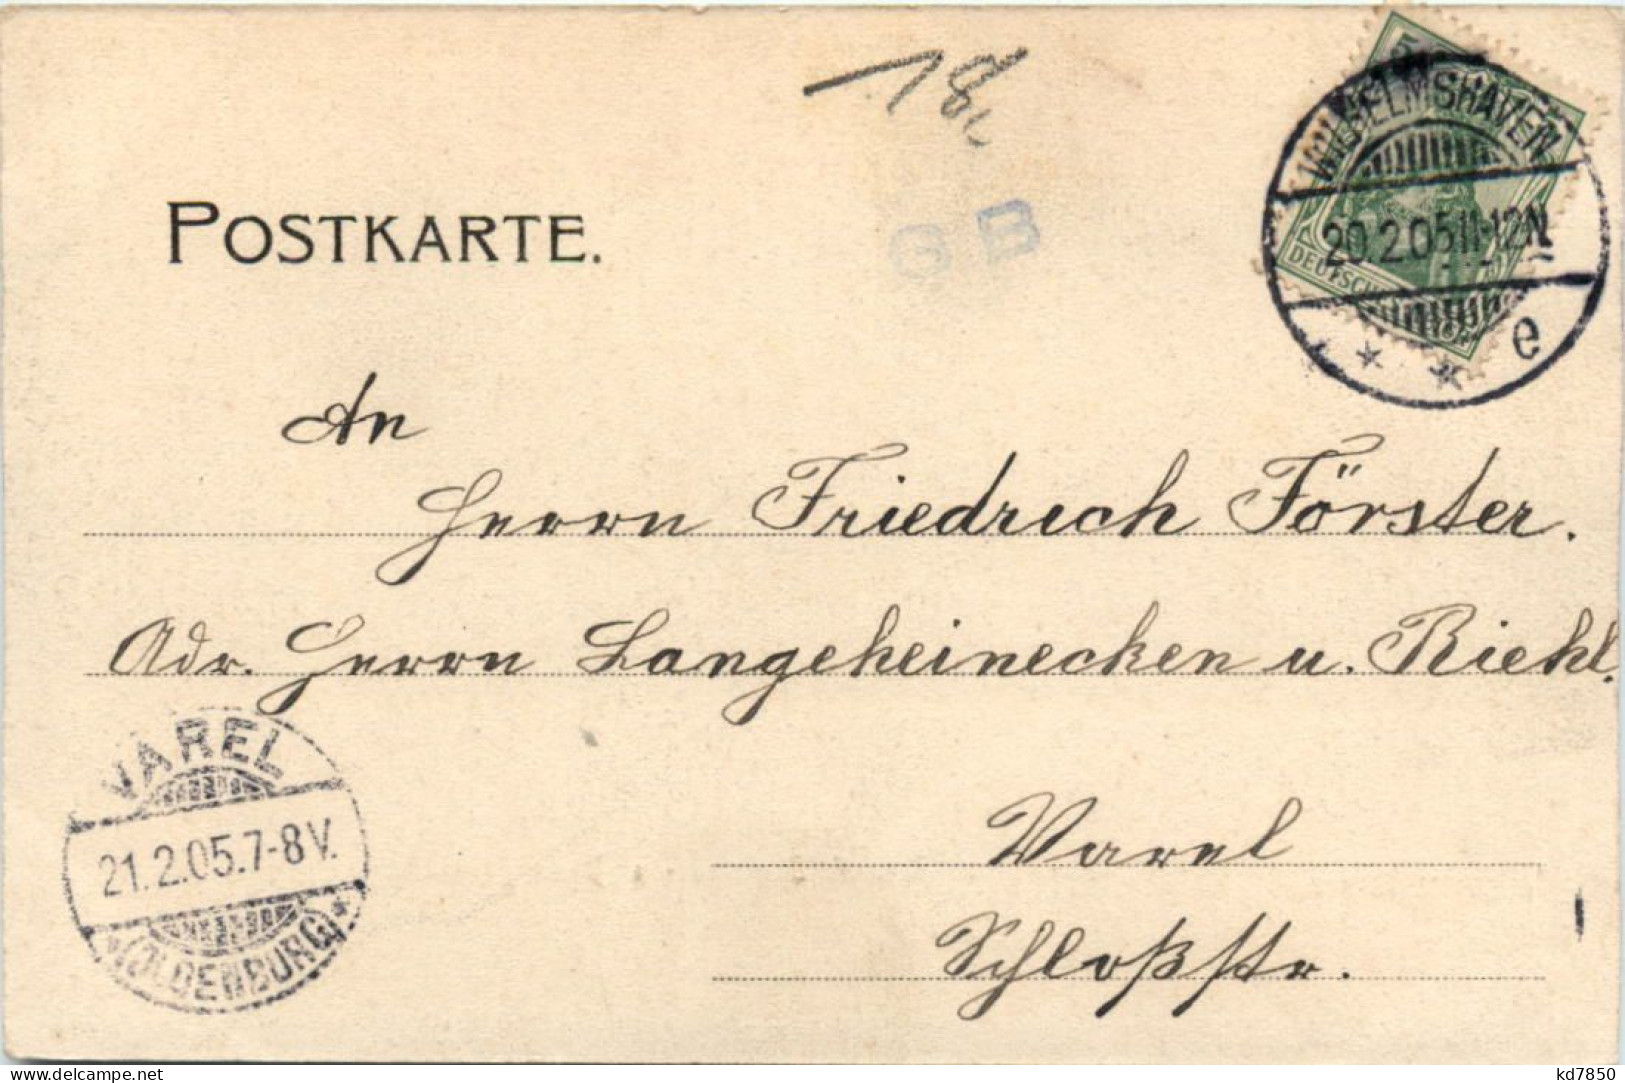 18
POSTKARTE.
G B
WILHELMSHAVEN
20.2.05.11-12N
* * e
DEUTSCHES
An
Herrn Friedrich Förster.
Adr. Herrn Langeheinecken u. Riehl.
VAREL
21.2.05.7-8V.
*(OLDENBURG)*
Varel
Schloßstr.
delcampe.net
kd7850